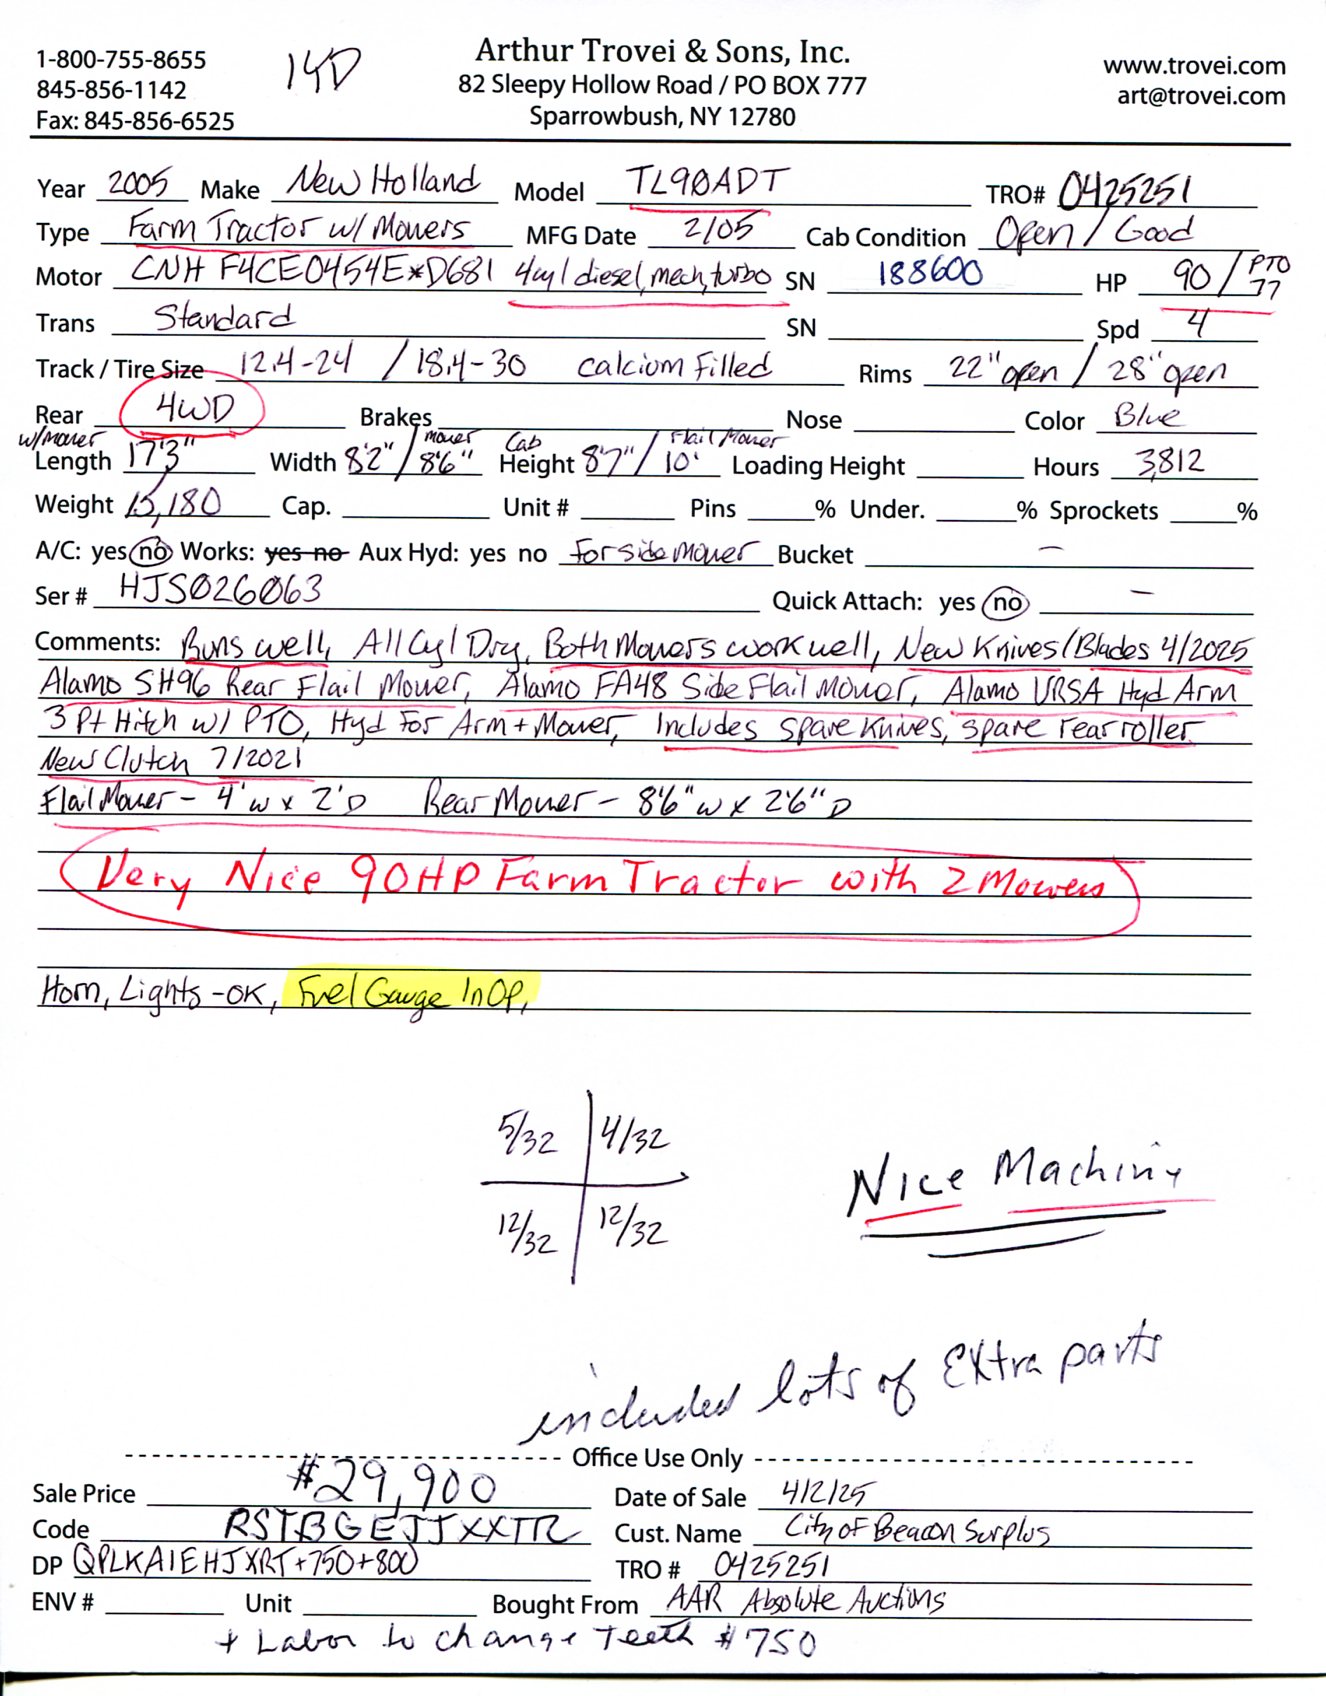 1-800-755-8655
845-856-1142
Fax: 845-856-6525
14D
Arthur Trovei & Sons, Inc.
82 Sleepy Hollow Road / PO BOX 777
Sparrowbush, NY 12780
www.trovei.com
art@trovei.com
Year 2005 Make New Holland Model TL90ADT TRO# 0425251
Type Farm Tractor w/ Mowers MFG Date 2/05 Cab Condition Open / Good
Motor CNH F4CE0454E*D681 4cyl diesel, mech, turbo SN 188600 HP 90 / PTO 77
Trans Standard SN Spd 4
Track / Tire Size 12.4-24 / 18.4-30 calcium Filled Rims 22" open / 28" open
Rear 4WD Brakes Nose Color Blue
w/mower Length 17'3" Width 8'2" / mower 8'6" Cab Height 8'7" / Flail Mower 10' Loading Height Hours 3,812
Weight 15,180 Cap. Unit # Pins % Under. % Sprockets %
A/C: yes no Works: yes no Aux Hyd: yes no For side mower Bucket —
Ser # HJS026063 Quick Attach: yes no —
Comments: Runs well, All Cyl Dry, Both Mowers work well, New Knives/Blades 4/2025
Alamo SH96 Rear Flail Mower, Alamo FA48 Side Flail Mower, Alamo VRSA Hyd Arm
3 Pt Hitch w/ PTO, Hyd For Arm + Mower, Includes spare Knives, spare rear roller
New Clutch 7/2021
Flail Mower - 4' w x 2' D Rear Mower - 8'6" w x 2'6" D
Very Nice 90HP Farm Tractor with 2 Mowers
Horn, Lights - OK, Fuel Gauge InOp,
5/32 4/32
12/32 12/32
Nice Machine
included lots of Extra parts
Office Use Only
Sale Price #29,900 Date of Sale 4/2/25
Code RSTBGEJJXXTR Cust. Name City of Beacon Surplus
DP QPLKAIEHJXRT+750+800 TRO # 0425251
ENV # Unit Bought From AAR Absolute Auctions
+ Labor to change Teeth #750